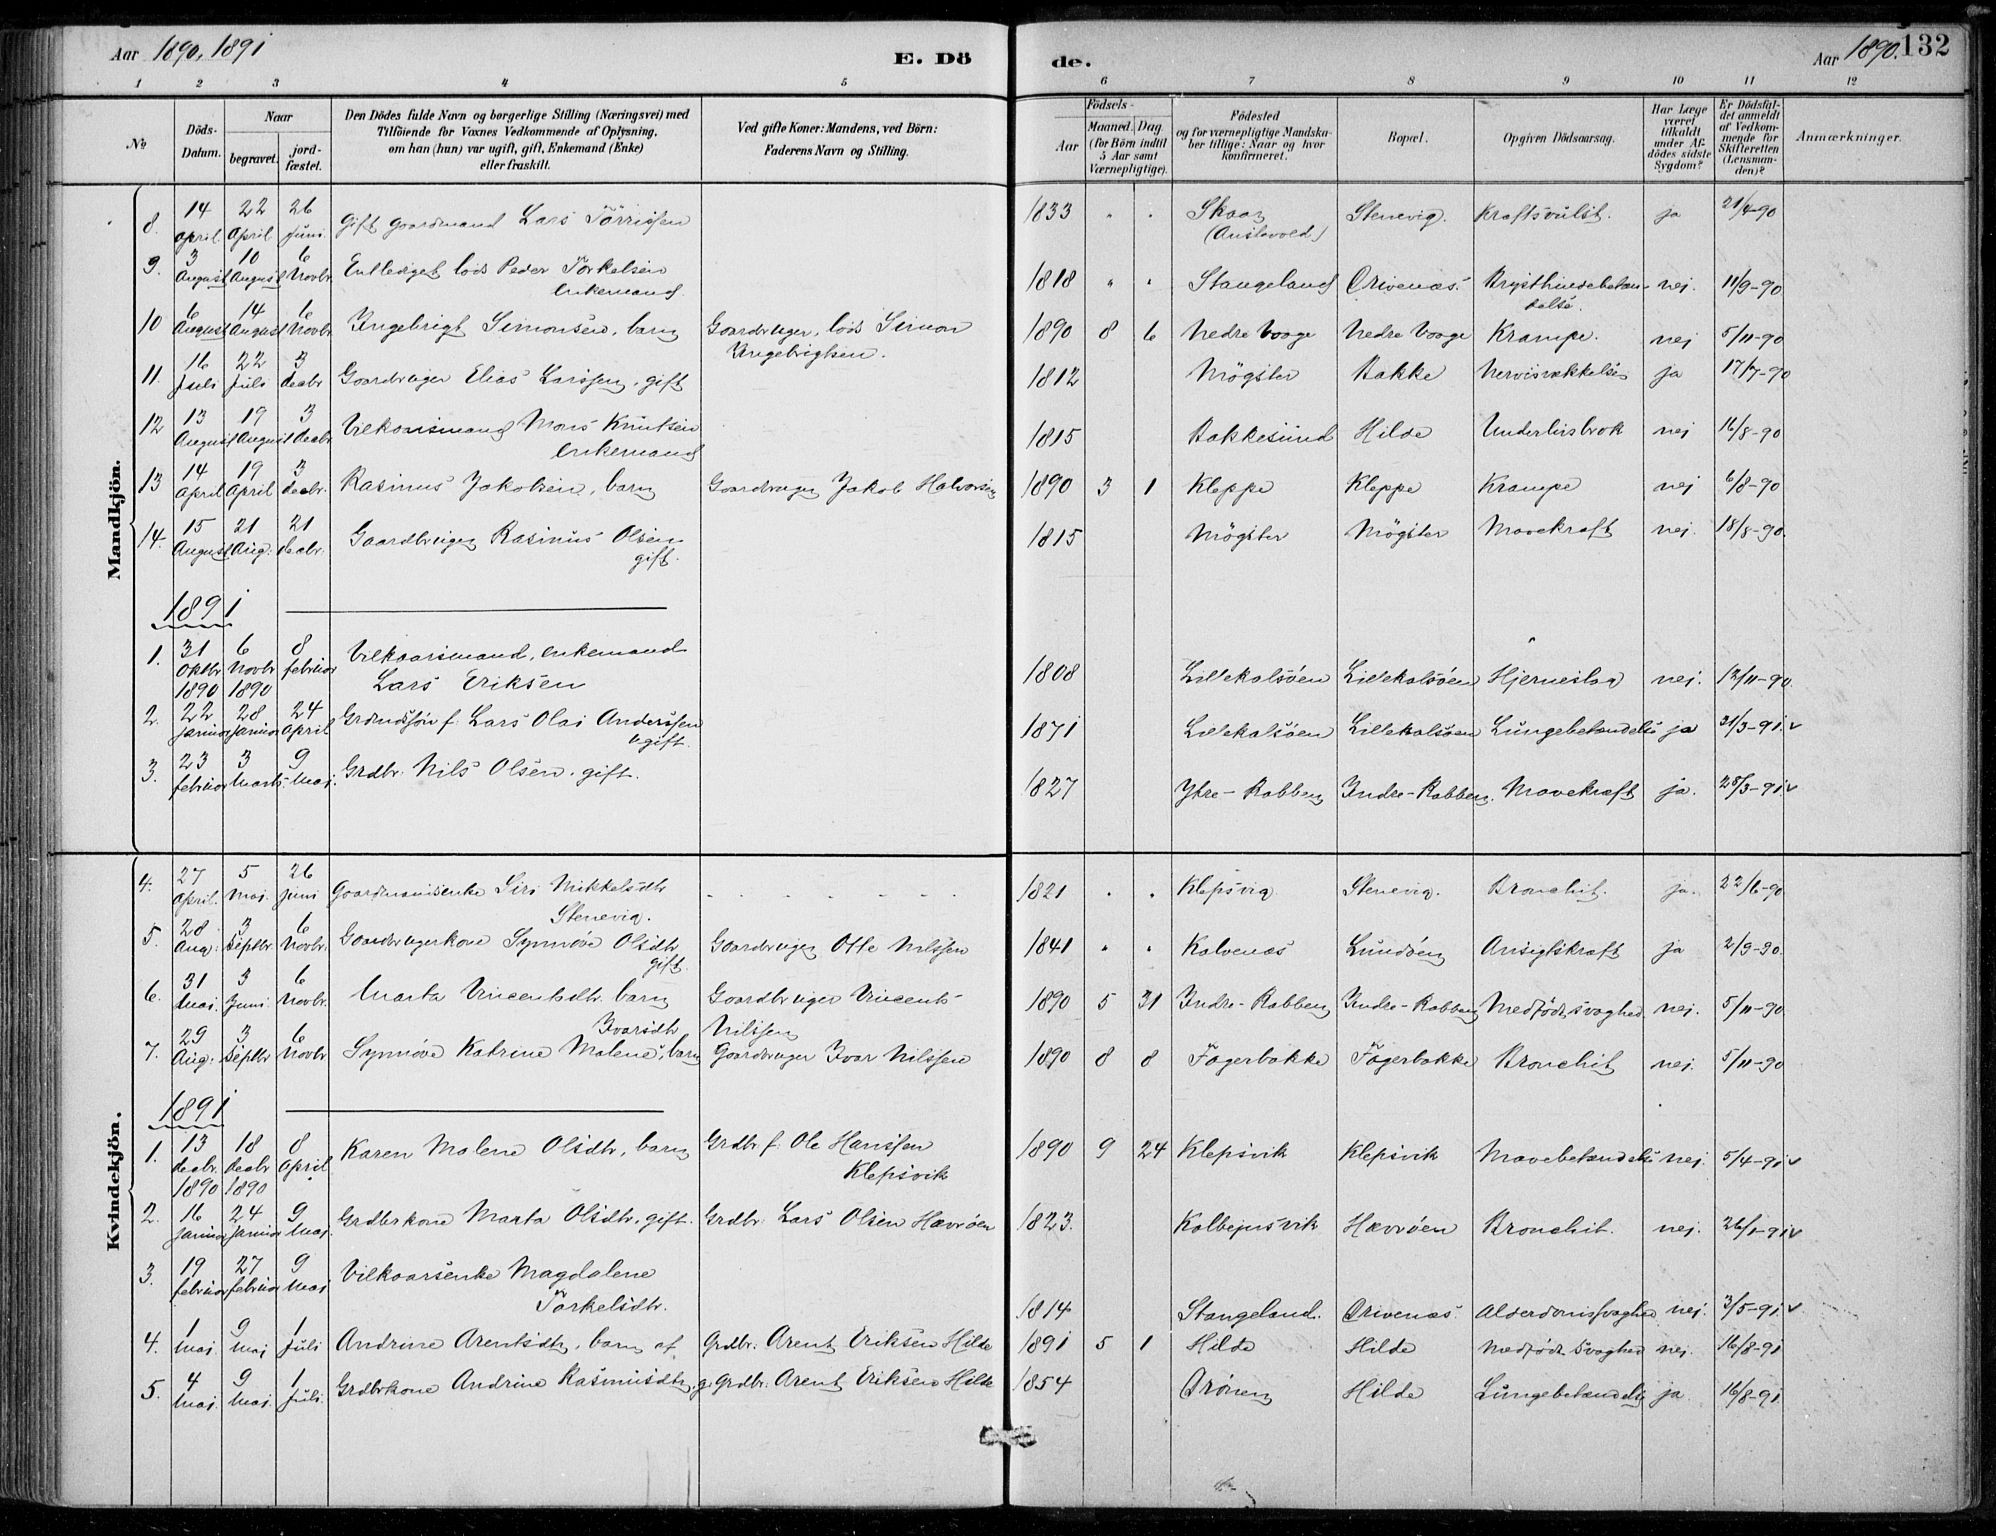 Aar 1890, 1891
E. Dö
de.
Aar 1890.
132
1 2 3 4 5 6 7 8 9 10 11 12
№
Döds-Datum.
Naar
begravet.
jordfæstet.
Den Dödes fulde Navn og borgerlige Stilling (Næringsvei) med
Tilföiende for Voxnes Vedkommende af Oplysning,
om han (hun) var ugift, gift, Enkemand (Enke)
eller fraskilt.
Ved gifte Koner: Mandens, ved Börn:
Faderens Navn og Stilling.
Födsels-
Aar
Maaned. Dag.
(for Börn indtil
5 Aar samt
Værnepligtige).
Födested
og for værnepligtige Mandska-
ber tillige: Naar og hvor
konfirmeret.
Bopæl.
Opgiven Dödsaarsag.
Har Læge
været
tilkaldt
under Af-
dödes sidste
Sygdom?
Er Dödsfal-
det anmeldt
af Vedkom-
mende for
Skifteretten
(Lensman-
den)?
Anmærkninger.
Mandkjön.
8. 14 april 22 April 26 Juni. Gift gaardmand Lars Tørrissen 1833 " " Skaar (Austevold) Stenevig. Kræftsvulst. ja 21/4-90
9. 3 August 10 August 6 Novbr. Entlediget lods Peder Torkelsen
enkemand 1818 " " Stangeland Drivenæs. Brysthindebetæn-
delse. nej. 11/9-90
10 6 August 14 August 6 Novbr Ingebrigt Simonsen, barn Gaardbruger, lods Simon
Ingebrigtsen. 1890 8 6 Nedre Vaage Nedre Vaage Krampe. nej 5/11-90
11. 16 Juli 22 Juli 3 decbr. Gaardbruger Elias Larssen, gift 1812 Møgster Bakke Nervesvækkelse ja 17/7-90
12 13 August 19 August 3 decbr. Vilkaarsmand Mons Knutsen
enkemand 1815 Bakkesund Hilde Underlivsbrok nej 16/8-90
13 14 April 19 April 3 decbr. Rasmus Jakobsen, barn Gaardbruger Jakob Halvorsen 1890 3 1 Kleppe Kleppe Krampe nej 6/8-90
14. 15 August 21 Aug. 21 decbr. Gaardbruger Rasmus Olsen
gift. 1815 Møgster Møgster Mavekræft nej. 18/8-90.
1891
1. 31 Oktbr 1890 6 Novbr 1890 8 februar Vilkaarsmand, enkemand
Lars Eriksen 1808 Lillekalsøen Lillekalsøen Hjerneslag nej. 12/11-90
2. 22 januar 28 januar 24 April Grdmdssøn f. Lars Olai Anderssen
ugift. 1871 Lillekalsøen Lillekalsøen Lungebetændelse ja 31/3-91.
3. 23 februar 3 Marts 9 Mai. Grdbr. Nils Olsen. gift. 1827 Ytre-Rabben Indre-Rabben. Mavekræft ja. 28/3-91.
Kvindekjön.
4. 27 April. 5 Mai. 26 Juni Gaardmandsenke Siri Mikkelsdtr
Stenevig. 1821 " " Klepsvig Stenevig. Bronchit. ja. 22/6-90
5. 28 Aug. 3 Septbr 6 Novbr. Gaardbrugerkone Synnøve Olsdtr
gift. Gaardbruger Otte Nilssen 1841 " " Kalvenæs Lundøen Ansigtskræft ja 2/9-90.
6. 31 Mai. 3 Juni. 6 Novbr. Marta Vincentsdtr. barn Gaardbruger Vincents
Nilssen 1890 5 31 Indre-Rabben Indre-Rabben Medfødt svaghed nej. 5/11-90
7. 29 Aug. 3 Septbr 6 Novbr Ivarsdtr
Synnøve Katrine Malene, barn Gaardbruger Ivar Nilssen 1890 8 8 Fagerbakke Fagerbakke Bronchit nej. 5/11-90
1891
1. 13 decbr. 1890 18 decbr 1890 8 April Karen Malene Olsdtr, barn Grdbr. f. Ole Hanssen
Klepsvik 1890 9 24 Klepsvik Klepsvik Mavebetændelse nej. 5/4-91
2. 16 januar 24 januar 9 Mai. Grdbrkone Marta Olsdtr. gift. Grdbr. Lars Olsen Hævrøen 1823. Kolbejnsvik Hævrøen Bronchit. nej. 26/1-91
3. 19 februar 27 februar 9 Mai Vilkaarsenke Magdalene
Torkelsdtr. 1814 Stangeland. Drivenæs. Alderdomssvaghed nej. 3/5-91
4. 1 Mai. 9 Mai 1 Juli Andrine Arentsdtr, barn af Grdbr. Arent Eriksen Hilde 1891 5 1 Hilde Hilde Medfødt Svaghed nej. 16/8-91
5. 4 Mai. 9 Mai. 1 Juli. Grdbrkone Andrine Rasmusdtr, g. Grdbr. Arent Eriksen Hilde 1854 Drønen Hilde Lungebetændelse ja 16/8-91.